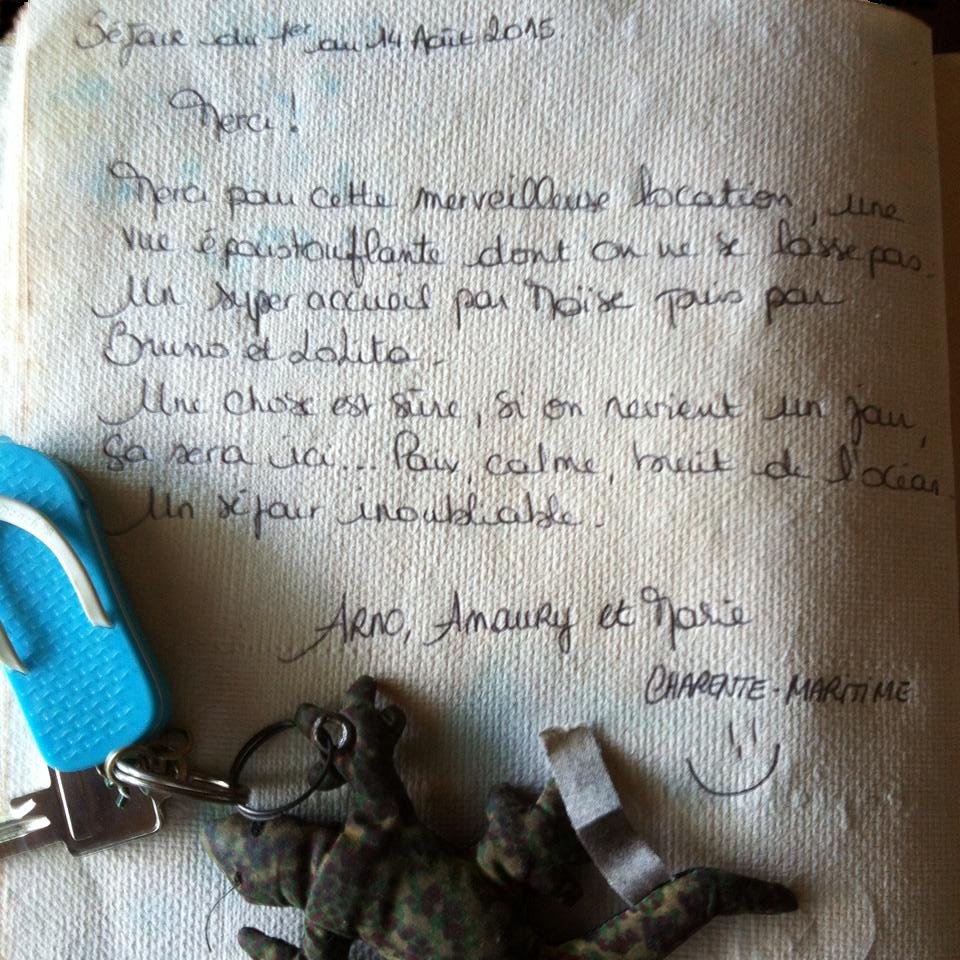 Séjour du 1er au 14 Août 2015.
Merci !
Merci pour cette merveilleuse location, une
vue époustouflante dont on ne se lasse pas.
Un super accueil par Moïse puis par
Bruno et Lolita.
Une chose est sûre, si on revient un jour,
ça sera ici... Paix, calme, bruit de l'océan.
Un séjour inoubliable.
Arno, Amaury et Marie
CHARENTE-MARITIME